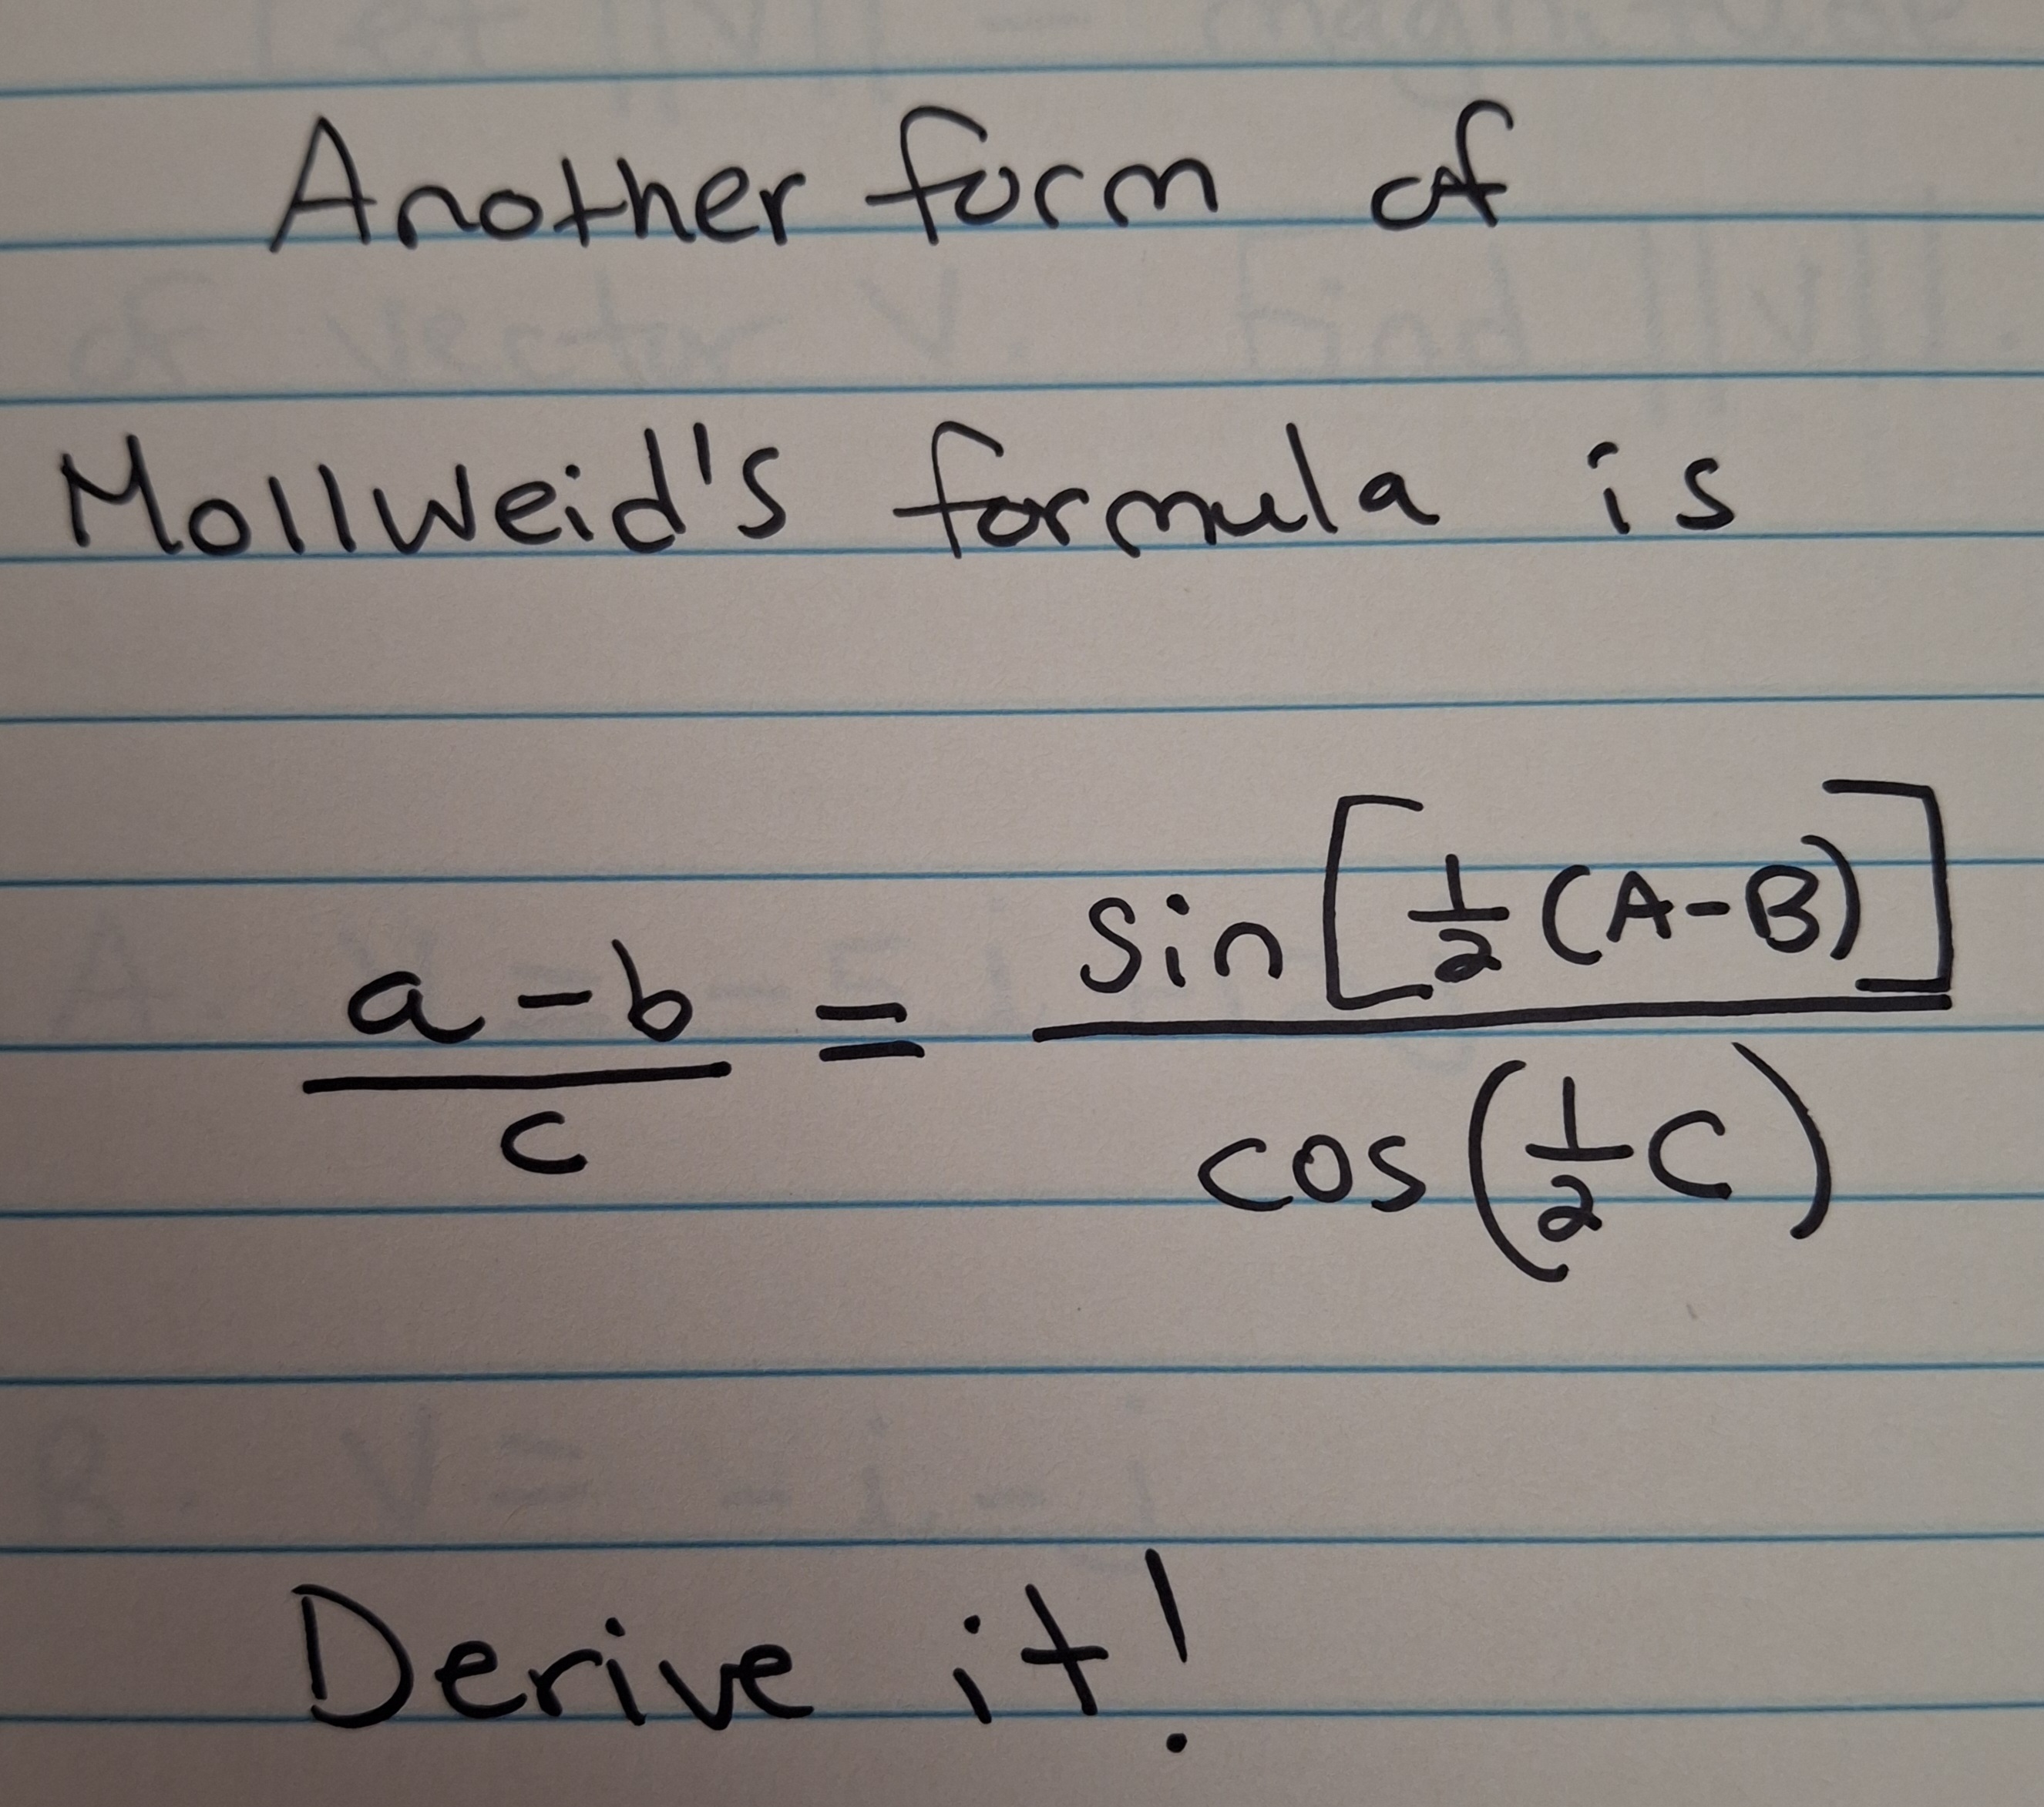 Another form of
Mollweid's formula is
a - b / c = sin[1/2 (A - B)] / cos(1/2 C)
Derive it!